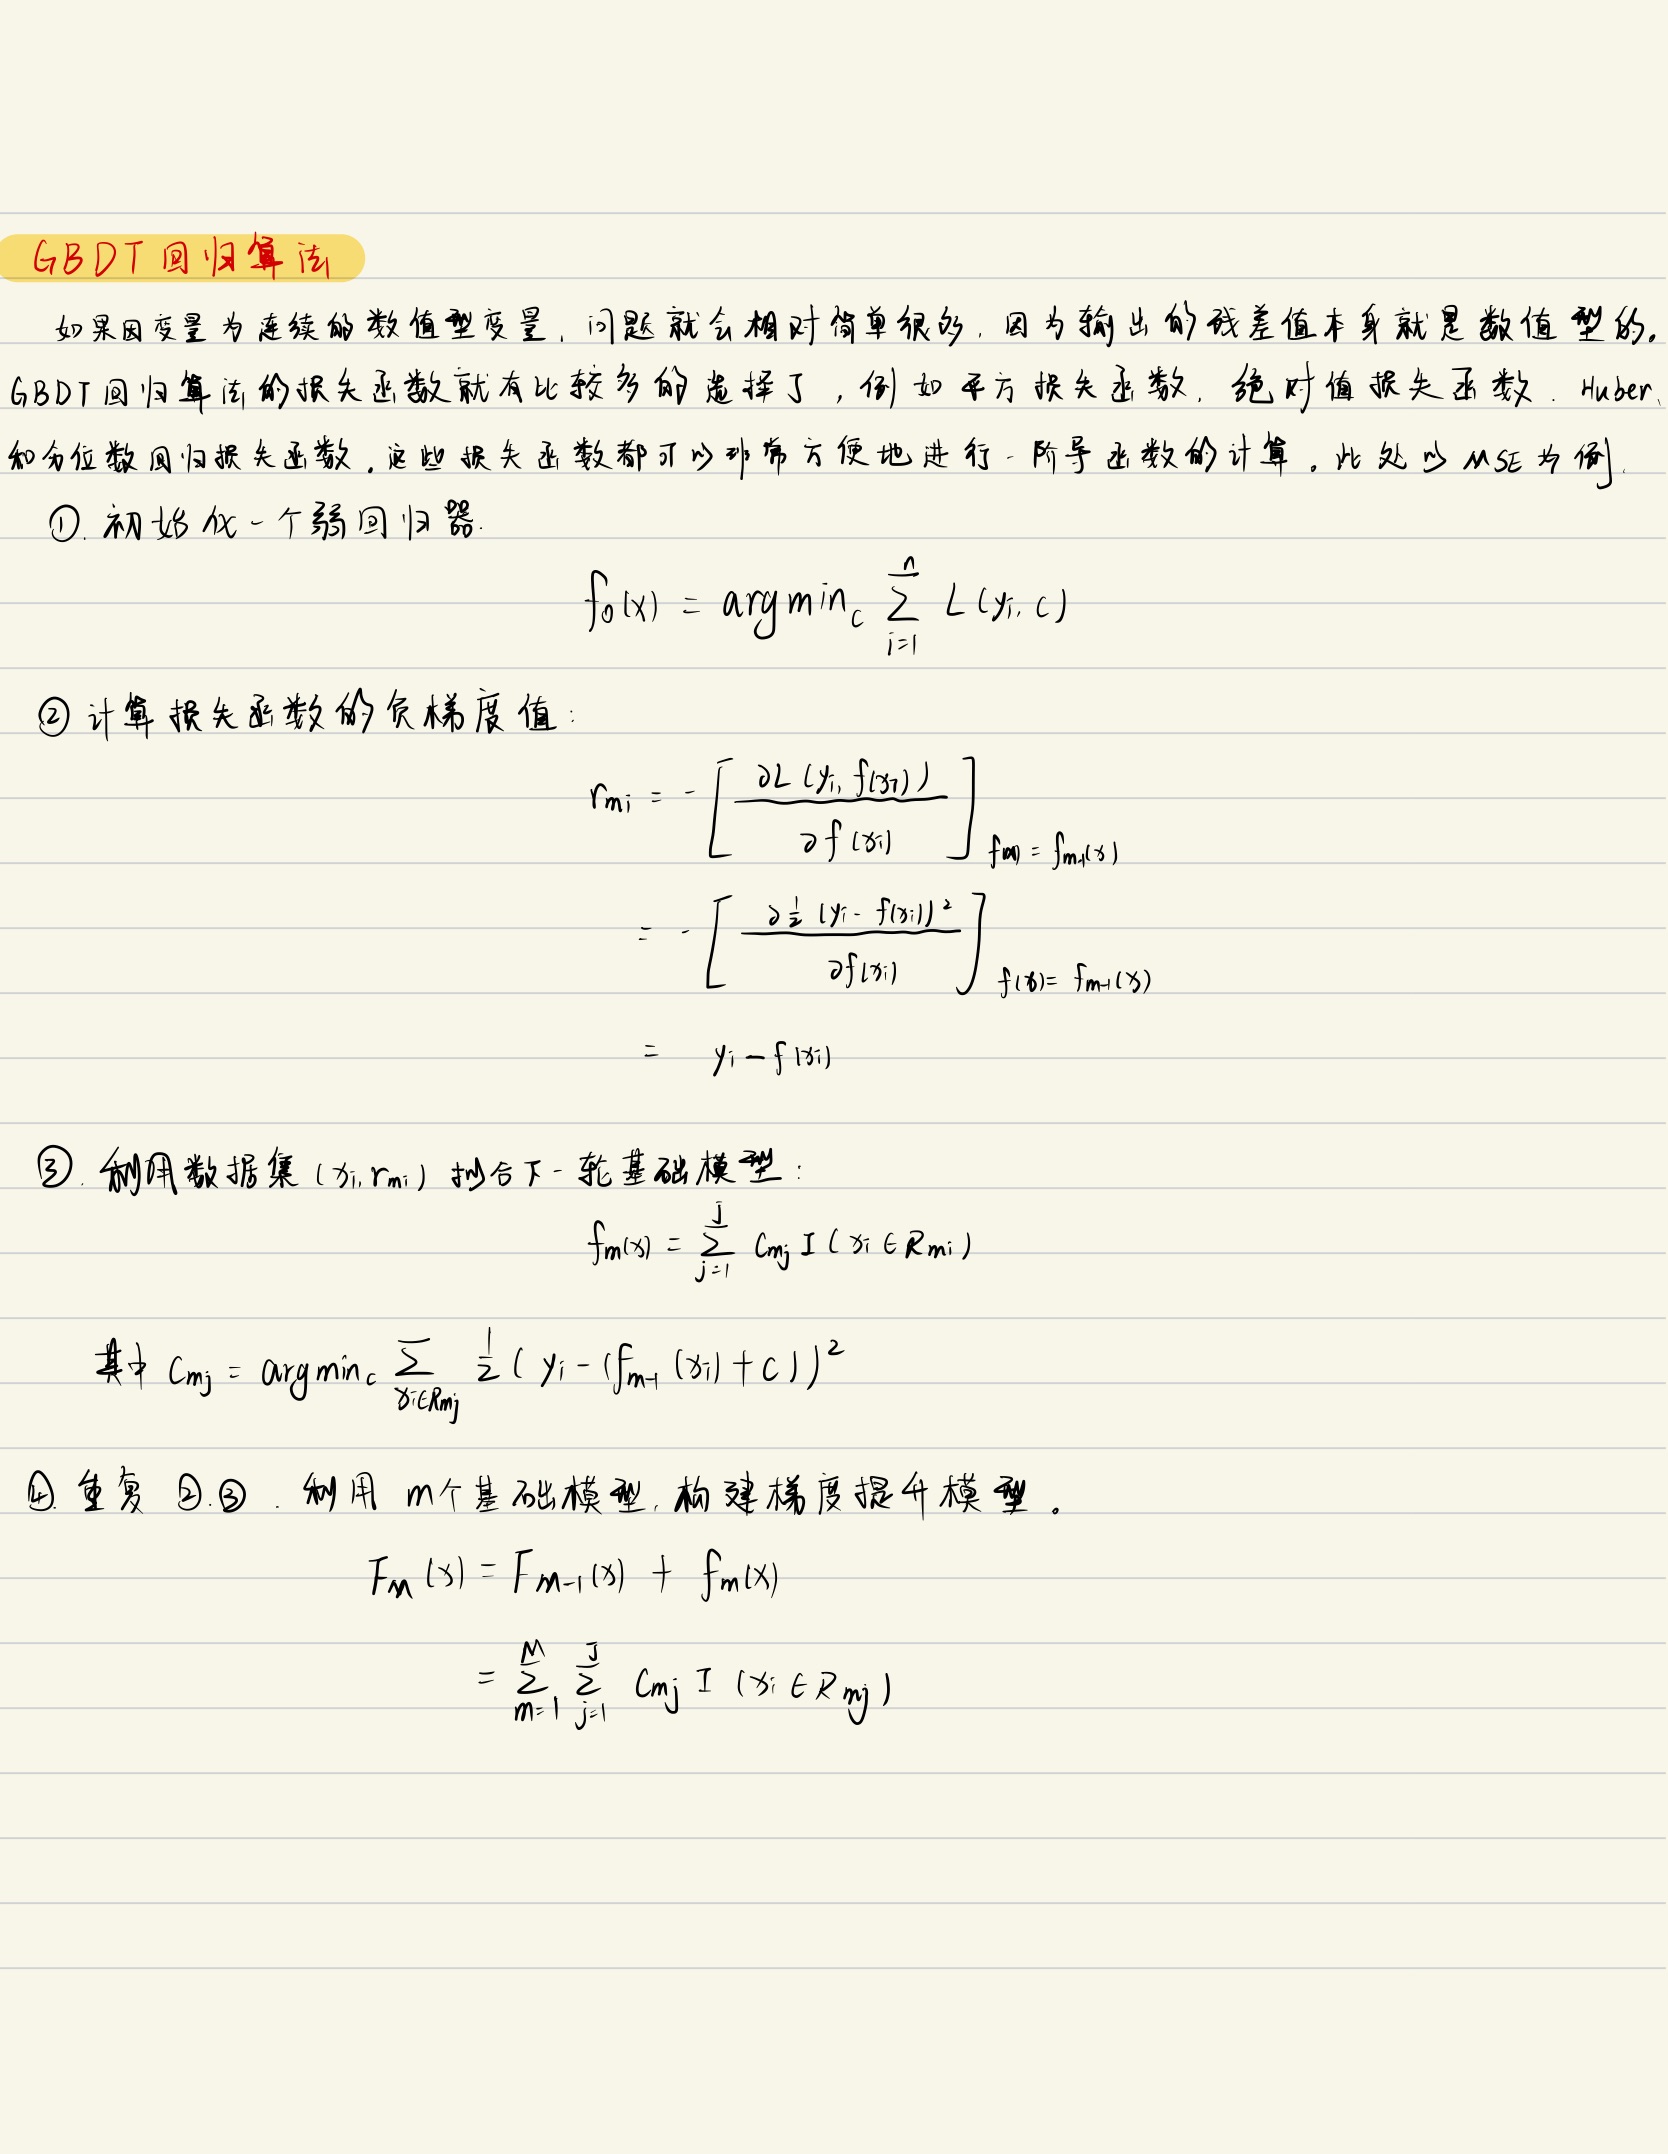 GBDT回归算法
如果因变量为连续的数值型变量,问题就会相对简单很多,因为输出的残差值本身就是数值型的。
GBDT回归算法的损失函数就有比较多的选择了,例如平方损失函数、绝对值损失函数、Huber、
和分位数回归损失函数。这些损失函数都可以非常方便地进行一阶导函数的计算。此处以MSE为例.
①. 初始化一个弱回归器.
f₀(x) = argmin_c ∑_{i=1}^{n} L(yᵢ, c)
② 计算损失函数的负梯度值:
r_{mi} = -[∂L(yᵢ, f(xᵢ)) / ∂f(xᵢ)]_{f(x) = f_{m-1}(x)}
= -[∂½(yᵢ - f(xᵢ))² / ∂f(xᵢ)]_{f(x) = f_{m-1}(x)}
= yᵢ - f(xᵢ)
③. 利用数据集(xᵢ, r_{mi})拟合下一轮基础模型:
f_m(x) = ∑_{j=1}^{J} C_{mj} I(xᵢ ∈ R_{mi})
其中 C_{mj} = argmin_c ∑_{xᵢ∈R_{mj}} ½(yᵢ - (f_{m-1}(xᵢ) + c))²
④. 重复②.③. 利用m个基础模型,构建梯度提升模型。
F_m(x) = F_{m-1}(x) + f_m(x)
= ∑_{m=1}^{M} ∑_{j=1}^{J} C_{mj} I(xᵢ ∈ R_{mj})